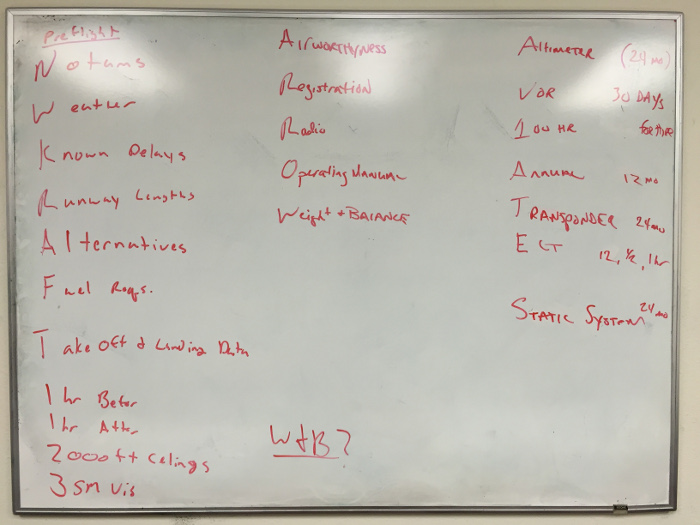 Preflight
Notams
Weather
Known Delays
Runway Lengths
Alternatives
Fuel Reqs.
Take Off & Landing Data
1 hr Before
1 hr After
2000 ft Celings
3 sm Vis
AIRWORTHYNESS
Registration
Radio
Operating MANUAL
Weight + BALANCE
W+B?
ALTIMETER (24 mo)
VOR 30 DAYS
100 HR FOR HIRE
ANNUAL 12 mo
TRANSPONDER 24 mo
ELT 12, 1/2, 1 hr
STATIC SYSTEM 24 mo